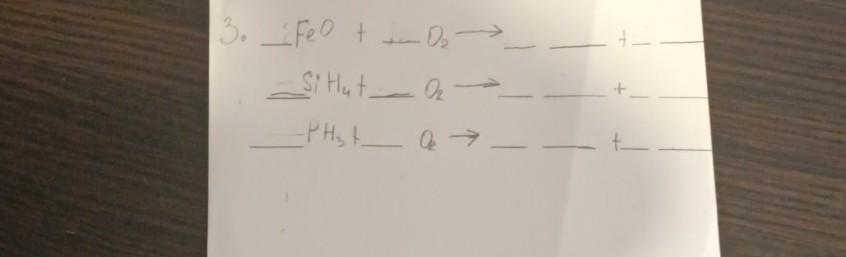 3. _FeO + _ O₂ → _ _ + _ _
_ SiH₄ + _ O₂ → _ _ + _ _
_ PH₃ + _ O₂ → _ _ + _ _